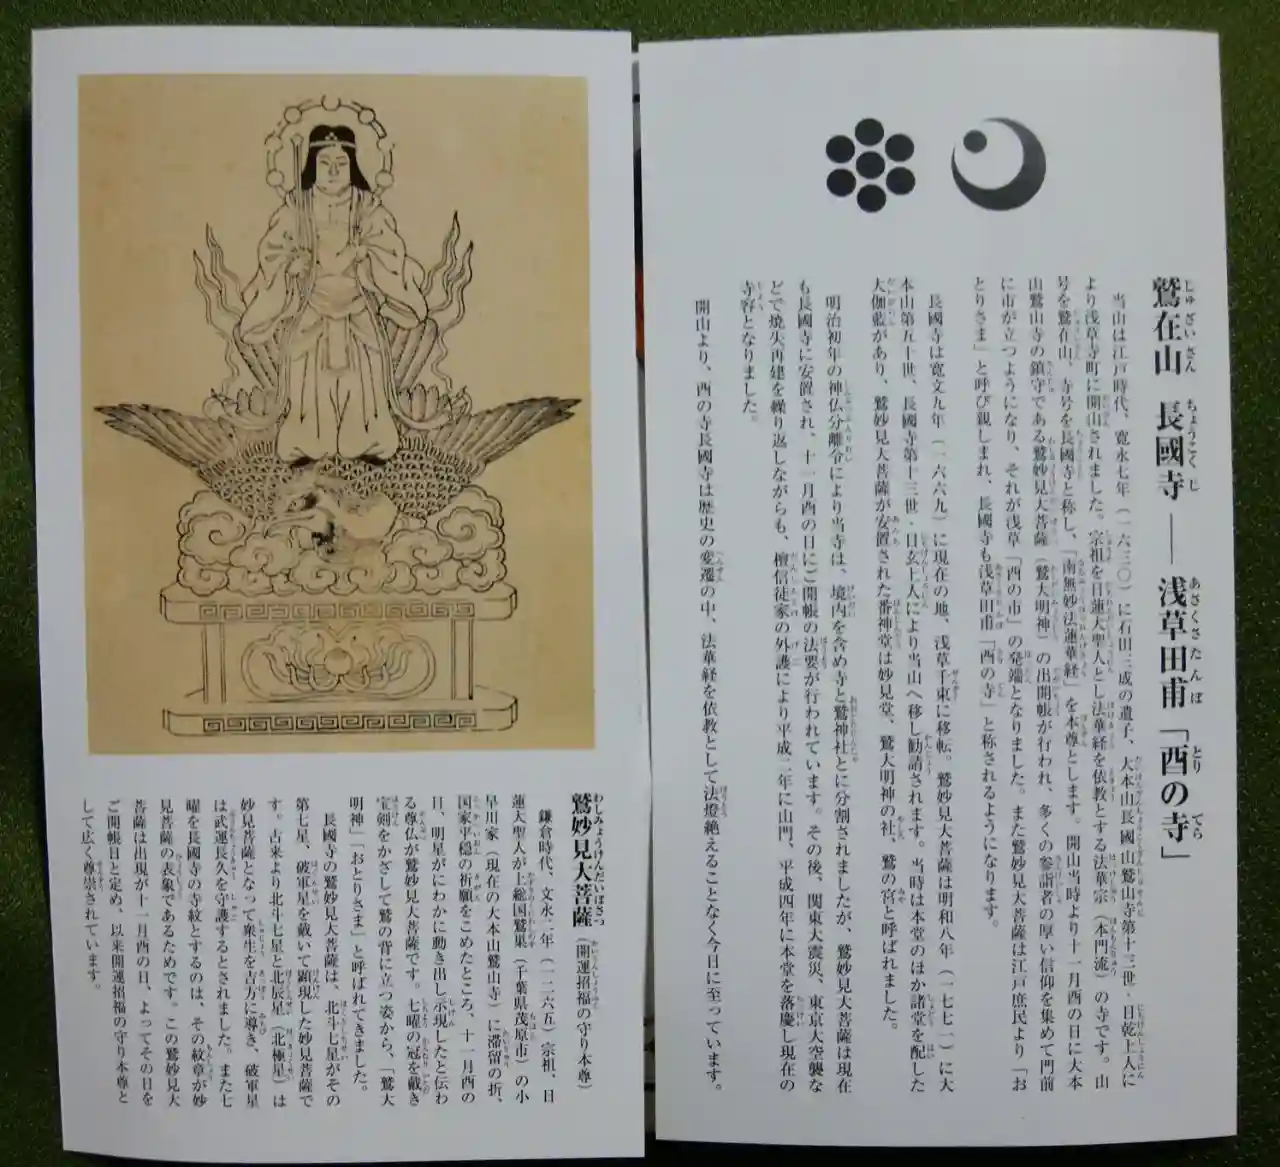 じゅざいさん ちょうこくじ あさくさたんぼ とり てら
鷲在山 長國寺 ── 浅草田甫「酉の寺」
当山は江戸時代、寛永七年(一六三〇)に石田三成の遺子、大本山長國山鷲山寺第十三世・日乾上人に
より浅草寺町に開山されました。宗祖を日蓮大聖人とし法華経を依教とする法華宗(本門流)の寺です。山
号を鷲在山、寺号を長國寺と称し、「南無妙法蓮華経」を本尊とします。開山当時より十一月酉の日に大本
山鷲山寺の鎮守である鷲妙見大菩薩(鷲大明神)の出開帳が行われ、多くの参詣者の厚い信仰を集めて門前
に市が立つようになり、それが浅草「酉の市」の発端となりました。また鷲妙見大菩薩は江戸庶民より「お
とりさま」と呼び親しまれ、長國寺も浅草田甫「酉の寺」と称されるようになります。
長國寺は寛文九年(一六六九)に現在の地、浅草千束に移転。鷲妙見大菩薩は明和八年(一七七一)に大
本山第五十世、長國寺第十三世・日玄上人により当山へ移し勧請されます。当時は本堂のほか諸堂を配した
大伽藍があり、鷲妙見大菩薩が安置された番神堂は妙見堂、鷲大明神の社、鷲の宮と呼ばれました。
明治初年の神仏分離令により当寺は、境内を含め寺と鷲神社とに分割されましたが、鷲妙見大菩薩は現在
も長國寺に安置され、十一月酉の日にご開帳の法要が行われています。その後、関東大震災、東京大空襲な
どで焼失再建を繰り返しながらも、檀信徒家の外護により平成二年に山門、平成四年に本堂を落慶し現在の
寺容となりました。
開山より、酉の寺長國寺は歴史の変遷の中、法華経を依教として法燈絶えることなく今日に至っています。
わしみょうけんだいぼさつ かいうんしょうふく
鷲妙見大菩薩(開運招福の守り本尊)
鎌倉時代、文永二年(一二六五)宗祖、日
蓮大聖人が上総国鷲巣(千葉県茂原市)の小
早川家(現在の大本山鷲山寺)に滞留の折、
国家平穏の祈願をこめたところ、十一月酉の
日、明星がにわかに動き出し示現したと伝わ
る尊仏が鷲妙見大菩薩です。七曜の冠を戴き
宝剣をかざして鷲の背に立つ姿から、「鷲大
明神」「おとりさま」と呼ばれてきました。
長國寺の鷲妙見大菩薩は、北斗七星がその
第七星、破軍星を戴いて顕現した妙見菩薩で
す。古来より北斗七星と北辰星(北極星)は
妙見菩薩となって衆生を吉方に導き、破軍星
は武運長久を守護するとされました。また七
曜を長國寺の寺紋とするのは、その紋章が妙
見菩薩の表象であるためです。この鷲妙見大
菩薩は出現が十一月酉の日、よってその日を
ご開帳日と定め、以来開運招福の守り本尊と
して広く尊崇されています。